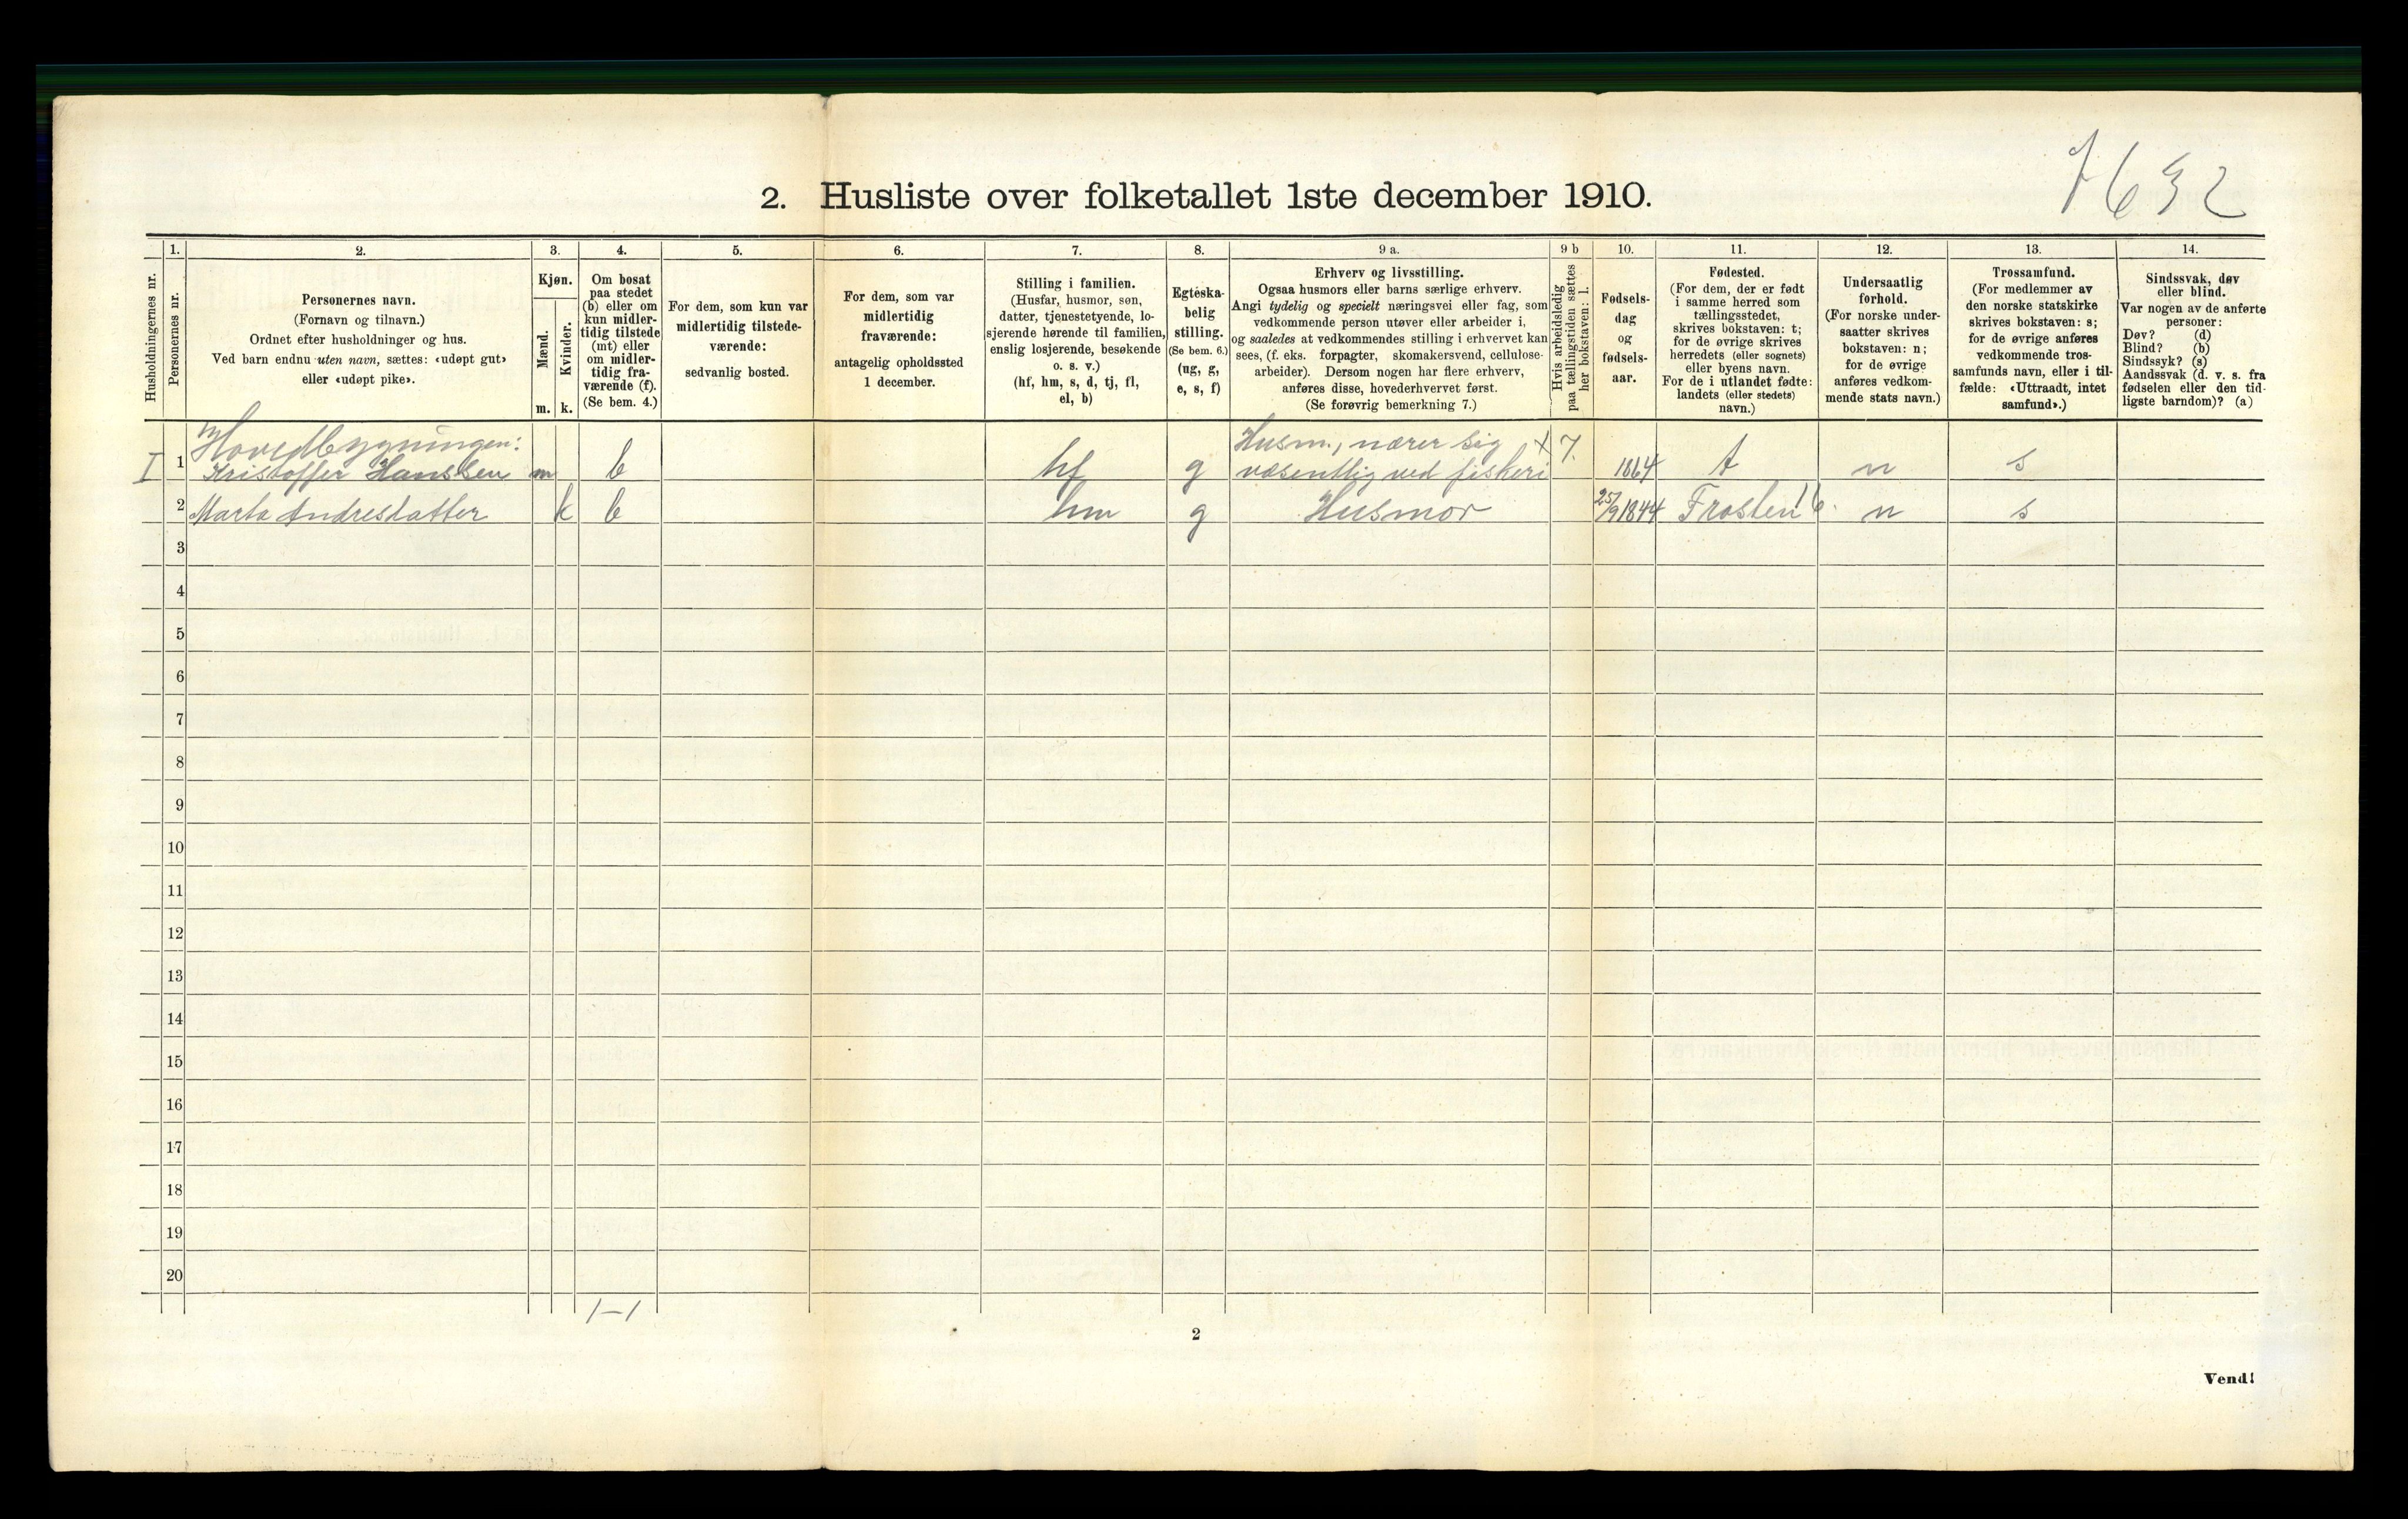 7632
2. Husliste over folketallet 1ste december 1910.
Husholdningernes nr.
1.
Personernes nr.
2.
Personernes navn.
(Fornavn og tilnavn.)
Ordnet efter husholdninger og hus.
Ved barn endnu uten navn, sættes: «udøpt gut»
eller «udøpt pike».
3.
Kjøn.
Mænd.
Kvinder.
m. k.
4.
Om bosat
paa stedet
(b) eller om
kun midler-
tidig tilstede
(mt) eller
om midler-
tidig fra-
værende (f).
(Se bem. 4.)
5.
For dem, som kun var
midlertidig tilstede-
værende:
sedvanlig bosted.
6.
For dem, som var
midlertidig
fraværende:
antagelig opholdssted
1 december.
7.
Stilling i familien.
(Husfar, husmor, søn,
datter, tjenestetyende, lo-
sjerende hørende til familien,
enslig losjerende, besøkende
o. s. v.)
(hf, hm, s, d, tj, fl,
el, b)
8.
Egteska-
belig
stilling.
(Se bem. 6.)
(ug, g,
e, s, f)
9 a.
Erhverv og livsstilling.
Ogsaa husmors eller barns særlige erhverv.
Angi tydelig og specielt næringsvei eller fag, som
vedkommende person utøver eller arbeider i,
og saaledes at vedkommendes stilling i erhvervet kan
sees, (f. eks. forpagter, skomakersvend, cellulose-
arbeider). Dersom nogen har flere erhverv,
anføres disse, hovederhvervet først.
(Se forøvrig bemerkning 7.)
9 b
Hvis arbeidsledig
paa tællingstiden sættes
her bokstaven: l.
10.
Fødsels-
dag
og
fødsels-
aar.
11.
Fødested.
(For dem, der er født
i samme herred som
tællingsstedet,
skrives bokstaven: t;
for de øvrige skrives
herredets (eller sognets)
eller byens navn.
For de i utlandet fødte:
landets (eller stedets)
navn.)
12.
Undersaatlig
forhold.
(For norske under-
saatter skrives
bokstaven: n;
for de øvrige
anføres vedkom-
mende stats navn.)
13.
Trossamfund.
(For medlemmer av
den norske statskirke
skrives bokstaven: s;
for de øvrige anføres
vedkommende tros-
samfunds navn, eller i til-
fælde: «Uttraadt, intet
samfund».)
14.
Sindssvak, døv
eller blind.
Var nogen av de anførte
personer:
Døv? (d)
Blind? (b)
Sindssyk? (s)
Aandssvak (d. v. s. fra
fødselen eller den tid-
ligste barndom)? (a)
Hovedbygningen: Husm., nærer sig x 7.
I 1 Kristoffer Hanssen m b hf g væsentlig ved fiskeri 1864 t n s
2 Marta Andresdatter k b hm g Husmor 25/9 1844 Frosten 16. n s
3
4
5
6
7
8
9
10
11
12
13
14
15
16
17
18
19
20
1-1
2
Vend!